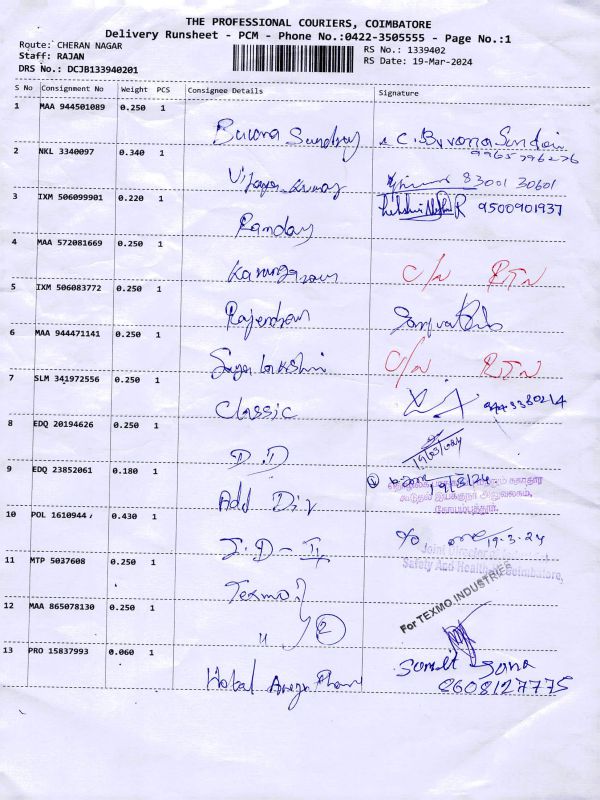 THE PROFESSIONAL COURIERS, COIMBATORE
Delivery Runsheet - PCM - Phone No.:0422-3505555 - Page No.:1
Route: CHERAN NAGAR RS No.: 1339402
Staff: RAJAN RS Date: 19-Mar-2024
DRS No.: DCJB133940201
S No Consignment No Weight PCS Consignee Details Signature
1 MAA 944501089 0.250 1
Buvana Sundray C. Buvana Sundari
9965796276
2 NKL 3340097 0.340 1
Vijaya Kumar 83001 30601
3 IXM 506099901 0.220 1
Randay 9500901937
4 MAA 572081669 0.250 1
C/N RTN
5 IXM 506083772 0.250 1
Rajendran
6 MAA 944471141 0.250 1
C/N RTN
7 SLM 341972556 0.250 1
Classic
8 EDQ 20194626 0.250 1
D.D 19/03/2024
9 EDQ 23852061 0.180 1
Add Dir 19/3/24
கூடுதல் இயக்குநர் அலுவலகம்,
கோயம்புத்தூர்.
10 POL 1610944 0.430 1
J.D - II 19.3.24
Joint Director
Safety And Health, Coimbatore,
11 MTP 5037608 0.250 1
Texmo
For TEXMO INDUSTRIES
12 MAA 865078130 0.250 1
" 2
13 PRO 15837993 0.060 1
Hotal Sumit Sona
8608127775